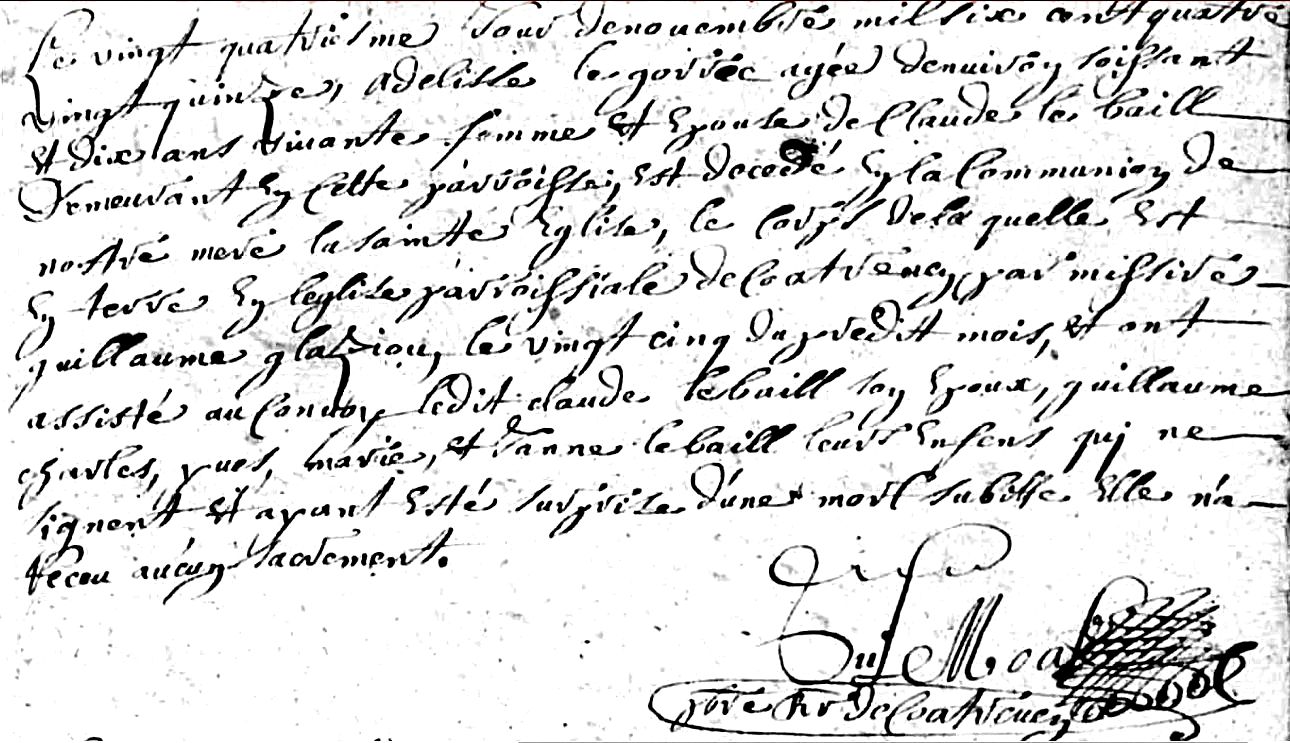 Le vingt quatriesme Jour denouembre mil six cent quatre
vingt quinze, adelisse le gorrec agée denuiron soissant
et dix ans viuante femme et Epouse de Claude le baill
Demeurant En cette parroisse, est decedé En la Communion de
nostre mere la sainte Eglise, le corps de la quelle Est
En terre En leglise parroissiale de Coatreuen par missire
guillaume glaziou, le vingt cinq du predit mois, et ont
assisté au Conuoy ledit claude le baill son Epoux, guillaume
charles, yues, marie, et Janne le baill leurs Enfens qui ne
signent et ayant Esté surprise d'une mort subitte Elle n'a
receu aucun sacrement.
Le Moal
pbre Rr De Coatreuen